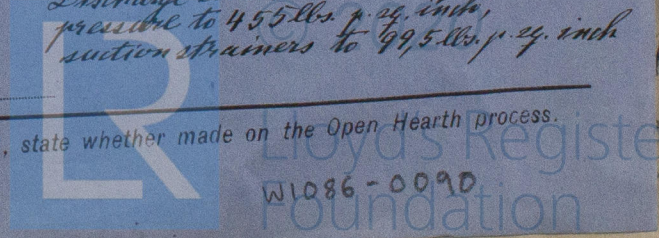 Discharge
pressure to 455 lbs. p. sq. inch,
suction strainers to 99,5 lbs. p. sq. inch
, state whether made on the Open Hearth process.
W1086-0090
LR
© 20
Lloyd's Registe
Foundation